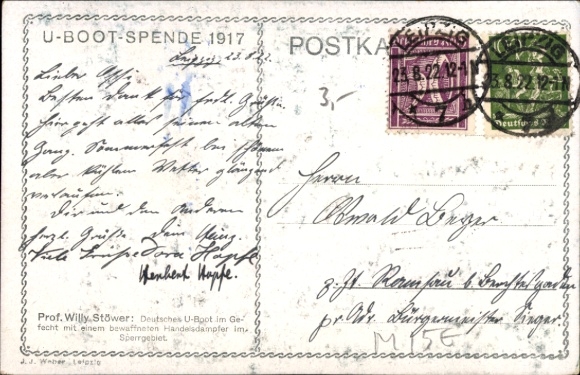 U-BOOT-SPENDE 1917
POSTKA
Leipzig 23.8.22
Lieber Ossi,
Besten Dank für frdl. Grüße.
Hier geht alles seinen alten
Gang. Sommerfest bei schönem
aber kühlem Wetter glänzend
verlaufen.
Dir und den Anderen
herzl. Grüße Dein
Viele Grüße Dora Hopfe
Herbert Hopfe.
Prof. Willy Stöwer: Deutsches U-Boot im Ge-
fecht mit einem bewaffneten Handelsdampfer im
Sperrgebiet.
J. J. Weber, Leipzig
3,-
LEIPZIG
23.8.22.12-1
* 7 n
LEIPZIG
23.8.22.12-1
Deutsches
Herrn
Oswald Beyer
z. Zt. Ramsau b. Berchtesgaden
pr. Adr. Bürgermeister
M 15E